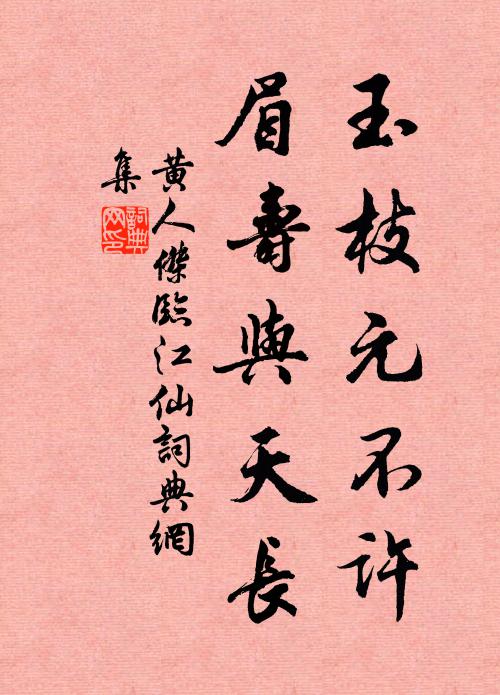 玉枝元不許
眉壽與天長
黄人傑臨江仙詞典網
集
詞典
网印